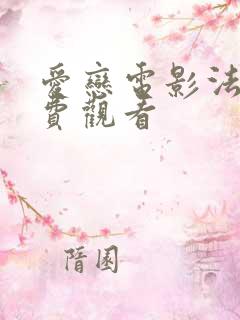 愛戀電影法
費觀看
隋園